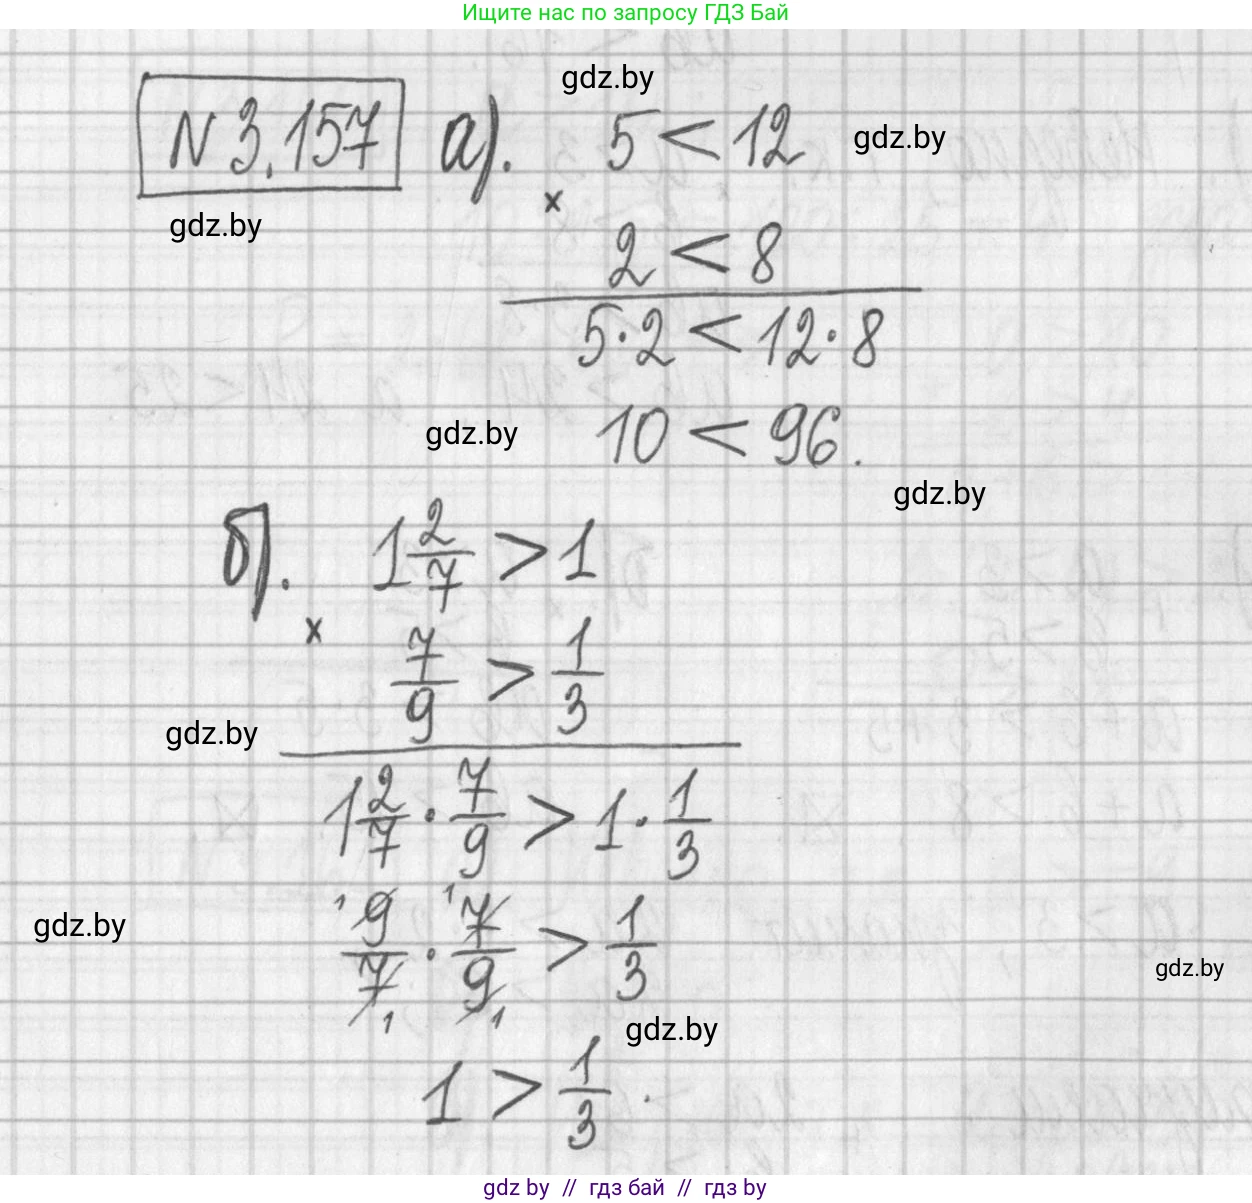 Ищите нас по запросу ГДЗ Бай
gdz.by
N 3.157 а). 5 < 12 gdz.by
×
gdz.by
2 < 8
5·2 < 12·8
gdz.by 10 < 96.
gdz.by
б). 1 2/7 > 1
×
7/9 > 1/3
gdz.by
1 2/7 · 7/9 > 1 · 1/3
1 1
gdz.by 9/7 · 7/9 > 1/3
gdz.by
1 1
gdz.by
1 > 1/3.
gdz by // гдз бай // гдз by